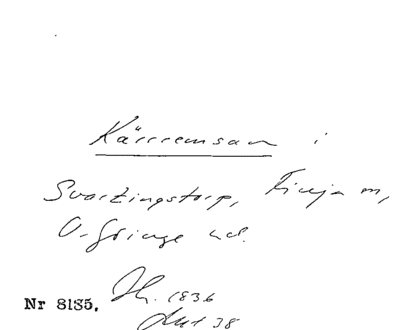 Kärrremsan i
Svartingstorp, Finja sn,
V. Göinge hd.
Nr 8185. Jh. 1836
Akt 38